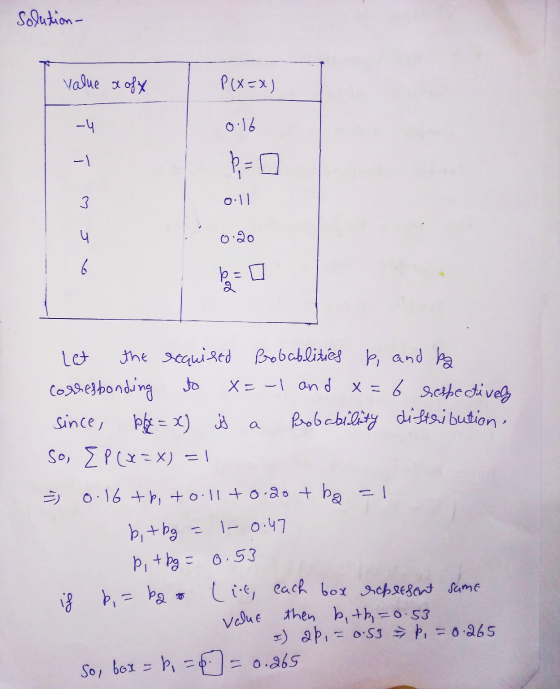 Solution -
Value x of X P(X=x)
-4 0.16
-1 p₁ = □
3 0.11
4 0.20
6 p₂ = □
Let the required Probablities p₁ and p₂
corresponding to X = -1 and X = 6 respectively
since, p(x = x) is a Probability distribution.
So, ΣP(x=x) = 1
⇒ 0.16 + p₁ + 0.11 + 0.20 + p₂ = 1
p₁ + p₂ = 1 - 0.47
p₁ + p₂ = 0.53
if p₁ = p₂ (i.e, each box represent same
value then p₁ + p₁ = 0.53
⇒ 2p₁ = 0.53 ⇒ p₁ = 0.265
So, box = p₁ = □ = 0.265